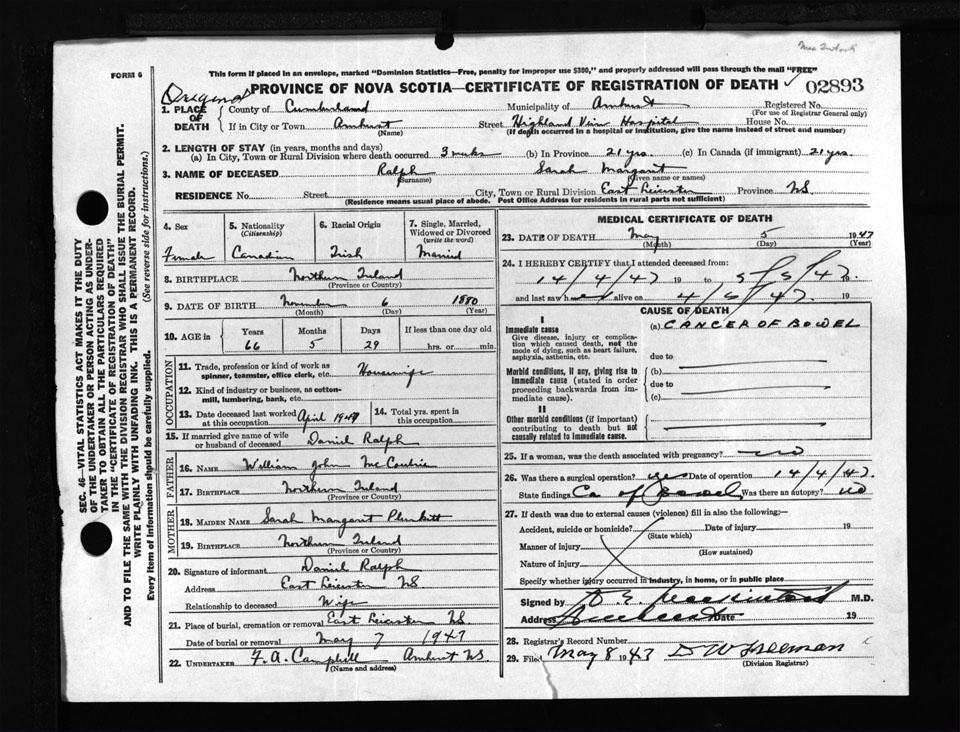 FORM 6
This form if placed in an envelope, marked "Dominion Statistics—Free, penalty for improper use $300," and properly addressed will pass through the mail "FREE"
Original
PROVINCE OF NOVA SCOTIA—CERTIFICATE OF REGISTRATION OF DEATH 02893
1. PLACE OF DEATH County of Cumberland Municipality of Amherst Registered No.
(For use of Registrar General only)
If in City or Town Amherst Street Highland View Hospital House No.
(Name) (If death occurred in a hospital or institution, give the name instead of street and number)
2. LENGTH OF STAY (in years, months and days)
(a) In City, Town or Rural Division where death occurred 3 weeks (b) In Province 21 yrs. (c) In Canada (if immigrant) 21 yrs.
3. NAME OF DECEASED Ralph Sarah Margaret
(Surname) (Given name or names)
RESIDENCE No. Street City, Town or Rural Division East Leicester Province NS
(Residence means usual place of abode. Post Office Address for residents in rural parts not sufficient)
4. Sex 5. Nationality (Citizenship) 6. Racial Origin 7. Single, Married, Widowed or Divorced (write the word)
Female Canadian Irish Married
8. BIRTHPLACE Northern Ireland
(Province or Country)
9. DATE OF BIRTH November 6 1880
(Month) (Day) (Year)
10. AGE in Years Months Days If less than one day old
66 5 29 hrs. or min.
OCCUPATION
11. Trade, profession or kind of work as spinner, teamster, office clerk, etc. Housewife
12. Kind of industry or business, as cotton-mill, lumbering, bank, etc.
13. Date deceased last worked at this occupation April 1947 14. Total yrs. spent in this occupation
15. If married give name of wife or husband of deceased Daniel Ralph
FATHER
16. NAME William John
17. BIRTHPLACE Northern Ireland
(Province or Country)
MOTHER
18. MAIDEN NAME Sarah Margaret Plunkett
19. BIRTHPLACE Northern Ireland
(Province or Country)
20. Signature of informant Daniel Ralph
Address East Leicester NS
Relationship to deceased Wife
21. Place of burial, cremation or removal East Leicester NS
Date of burial or removal May 7 1947
22. UNDERTAKER F. A. Campbell Amherst NS
(Name and address)
MEDICAL CERTIFICATE OF DEATH
23. DATE OF DEATH May 5 1947
(Month) (Day) (Year)
24. I HEREBY CERTIFY that I attended deceased from:
14/4/47 19 to 5/5/47. 19
and last saw h er alive on 4/5/47. 19
CAUSE OF DEATH
I
Immediate cause (a) CANCER OF BOWEL
Give disease, injury or complication which caused death, not the mode of dying, such as heart failure, asphyxia, asthenia, etc.
due to
Morbid conditions, if any, giving rise to immediate cause (stated in order proceeding backwards from immediate cause).
(b)
due to
(c)
II
Other morbid conditions (if important) contributing to death but not causally related to immediate cause.
25. If a woman, was the death associated with pregnancy? no
26. Was there a surgical operation? yes Date of operation 14/4/47.
State findings Ca of Bowel Was there an autopsy? no
27. If death was due to external causes (violence) fill in also the following:—
Accident, suicide or homicide? Date of injury 19
(State which)
Manner of injury
(How sustained)
Nature of injury
Specify whether injury occurred in industry, in home, or in public place
Signed by M.D.
Address Amherst Date 19
28. Registrar's Record Number
29. Filed May 8 1947 D W Freeman
(Division Registrar)
SEC. 46—VITAL STATISTICS ACT MAKES IT THE DUTY
OF THE UNDERTAKER OR PERSON ACTING AS UNDER-
TAKER TO OBTAIN ALL THE PARTICULARS REQUIRED
IN THE "CERTIFICATE OF REGISTRATION OF DEATH"
AND TO FILE THE SAME WITH THE DIVISION REGISTRAR WHO SHALL ISSUE THE BURIAL PERMIT.
WRITE PLAINLY WITH UNFADING INK. THIS IS A PERMANENT RECORD.
Every item of information should be carefully supplied. (See reverse side for instructions.)